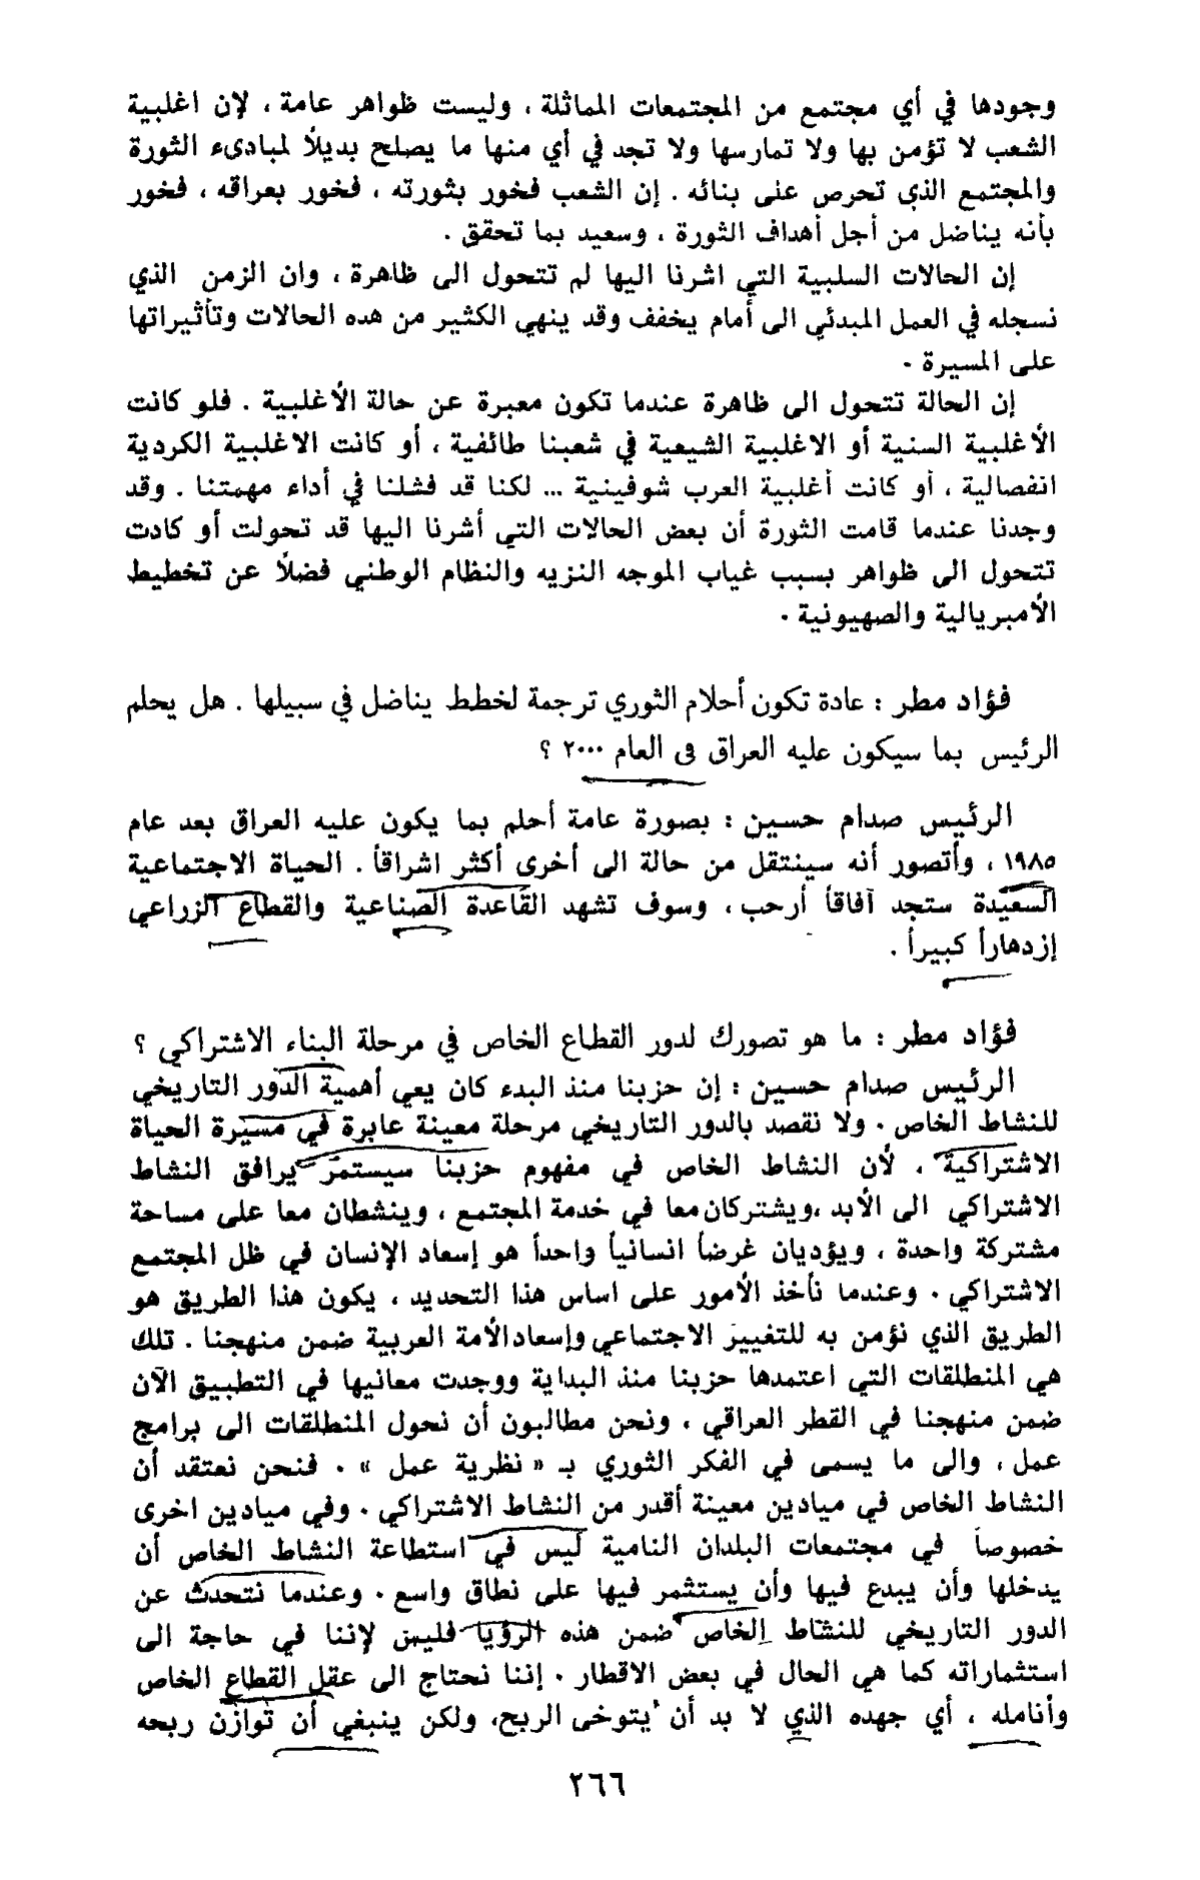 وجودها في أي مجتمع من المجتمعات المماثلة ، وليست ظواهر عامة ، لإن اغلبية
الشعب لا تؤمن بها ولا تمارسها ولا تجد في أي منها ما يصلح بديلاً لمبادىء الثورة
والمجتمع الذي تحرص على بنائه . إن الشعب فخور بثورته ، فخور بعراقه ، فخور
بأنه يناضل من أجل أهداف الثورة ، وسعيد بما تحقق .
إن الحالات السلبية التي اشرنا اليها لم تتحول الى ظاهرة ، وان الزمن الذي
نسجله في العمل المبدئي الى أمام يخفف وقد ينهي الكثير من هده الحالات وتأثيراتها
على المسيرة .
إن الحالة تتحول الى ظاهرة عندما تكون معبرة عن حالة الأغلبية . فلو كانت
الأغلبية السنية أو الاغلبية الشيعية في شعبنا طائفية ، أو كانت الاغلبية الكردية
انفصالية ، أو كانت أغلبية العرب شوفينية ... لكنا قد فشلنا في أداء مهمتنا . وقد
وجدنا عندما قامت الثورة أن بعض الحالات التي أشرنا اليها قد تحولت أو كادت
تتحول الى ظواهر بسبب غياب الموجه النزيه والنظام الوطني فضلاً عن تخطيط
الأمبريالية والصهيونية .
فؤاد مطر : عادة تكون أحلام الثوري ترجمة لخطط يناضل في سبيلها . هل يحلم
الرئيس بما سيكون عليه العراق في العام ٢٠٠٠ ؟
الرئيس صدام حسين : بصورة عامة أحلم بما يكون عليه العراق بعد عام
١٩٨٥ ، وأتصور أنه سينتقل من حالة الى أخرى أكثر اشراقاً . الحياة الاجتماعية
السعيدة ستجد آفاقاً أرحب ، وسوف تشهد القاعدة الصناعية والقطاع الزراعي
إزدهاراً كبيراً .
فؤاد مطر : ما هو تصورك لدور القطاع الخاص في مرحلة البناء الاشتراكي ؟
الرئيس صدام حسين : إن حزبنا منذ البدء كان يعي أهمية الدور التاريخي
للنشاط الخاص . ولا نقصد بالدور التاريخي مرحلة معينة عابرة في مسيرة الحياة
الاشتراكية ، لأن النشاط الخاص في مفهوم حزبنا سيستمر يرافق النشاط
الاشتراكي الى الأبد ،ويشتركان معا في خدمة المجتمع ، وينشطان معا على مساحة
مشتركة واحدة ، ويؤديان غرضاً انسانياً واحداً هو إسعاد الإنسان في ظل المجتمع
الاشتراكي . وعندما نأخذ الأمور على اساس هذا التحديد ، يكون هذا الطريق هو
الطريق الذي نؤمن به للتغيير الاجتماعي وإسعاد الأمة العربية ضمن منهجنا . تلك
هي المنطلقات التي اعتمدها حزبنا منذ البداية ووجدت معانيها في التطبيق الآن
ضمن منهجنا في القطر العراقي ، ونحن مطالبون أن نحول المنطلقات الى برامج
عمل ، والى ما يسمى في الفكر الثوري بـ « نظرية عمل » . فنحن نعتقد أن
النشاط الخاص في ميادين معينة أقدر من النشاط الاشتراكي . وفي ميادين اخرى
خصوصاً في مجتمعات البلدان النامية ليس في استطاعة النشاط الخاص أن
يدخلها وأن يبدع فيها وأن يستثمر فيها على نطاق واسع . وعندما نتحدث عن
الدور التاريخي للنشاط الخاص ضمن هذه الرؤيا فليس لإننا في حاجة الى
استثماراته كما هي الحال في بعض الاقطار . إننا نحتاج الى عقل القطاع الخاص
وأنامله ، أي جهده الذي لا بد أن يتوخى الربح، ولكن ينبغي أن توازن ربحه
٢٦٦